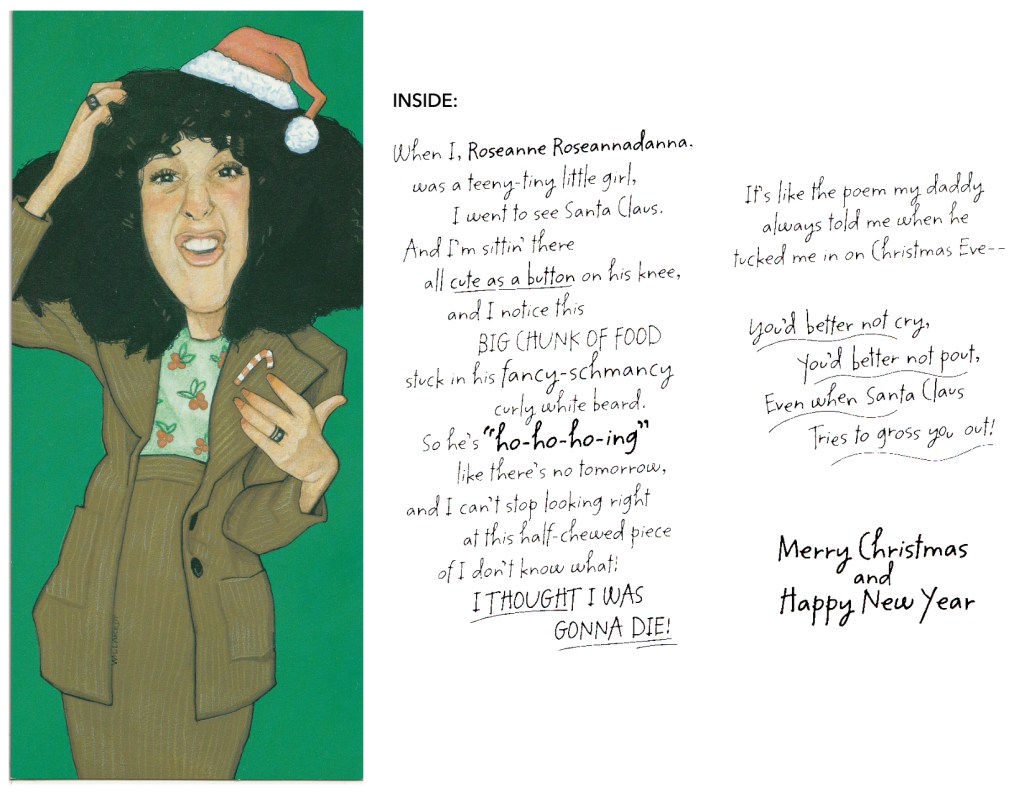 INSIDE:
When I, Roseanne Roseannadanna.
was a teeny-tiny little girl,
I went to see Santa Claus.
And I'm sittin' there
all cute as a button on his knee,
and I notice this
BIG CHUNK OF FOOD
stuck in his fancy-schmancy
curly white beard.
So he's "ho-ho-ho-ing"
like there's no tomorrow,
and I can't stop looking right
at this half-chewed piece
of I don't know what!
I THOUGHT I WAS
GONNA DIE!
It's like the poem my daddy
always told me when he
tucked me in on Christmas Eve--
You'd better not cry,
You'd better not pout,
Even when Santa Claus
Tries to gross you out!
Merry Christmas
and
Happy New Year